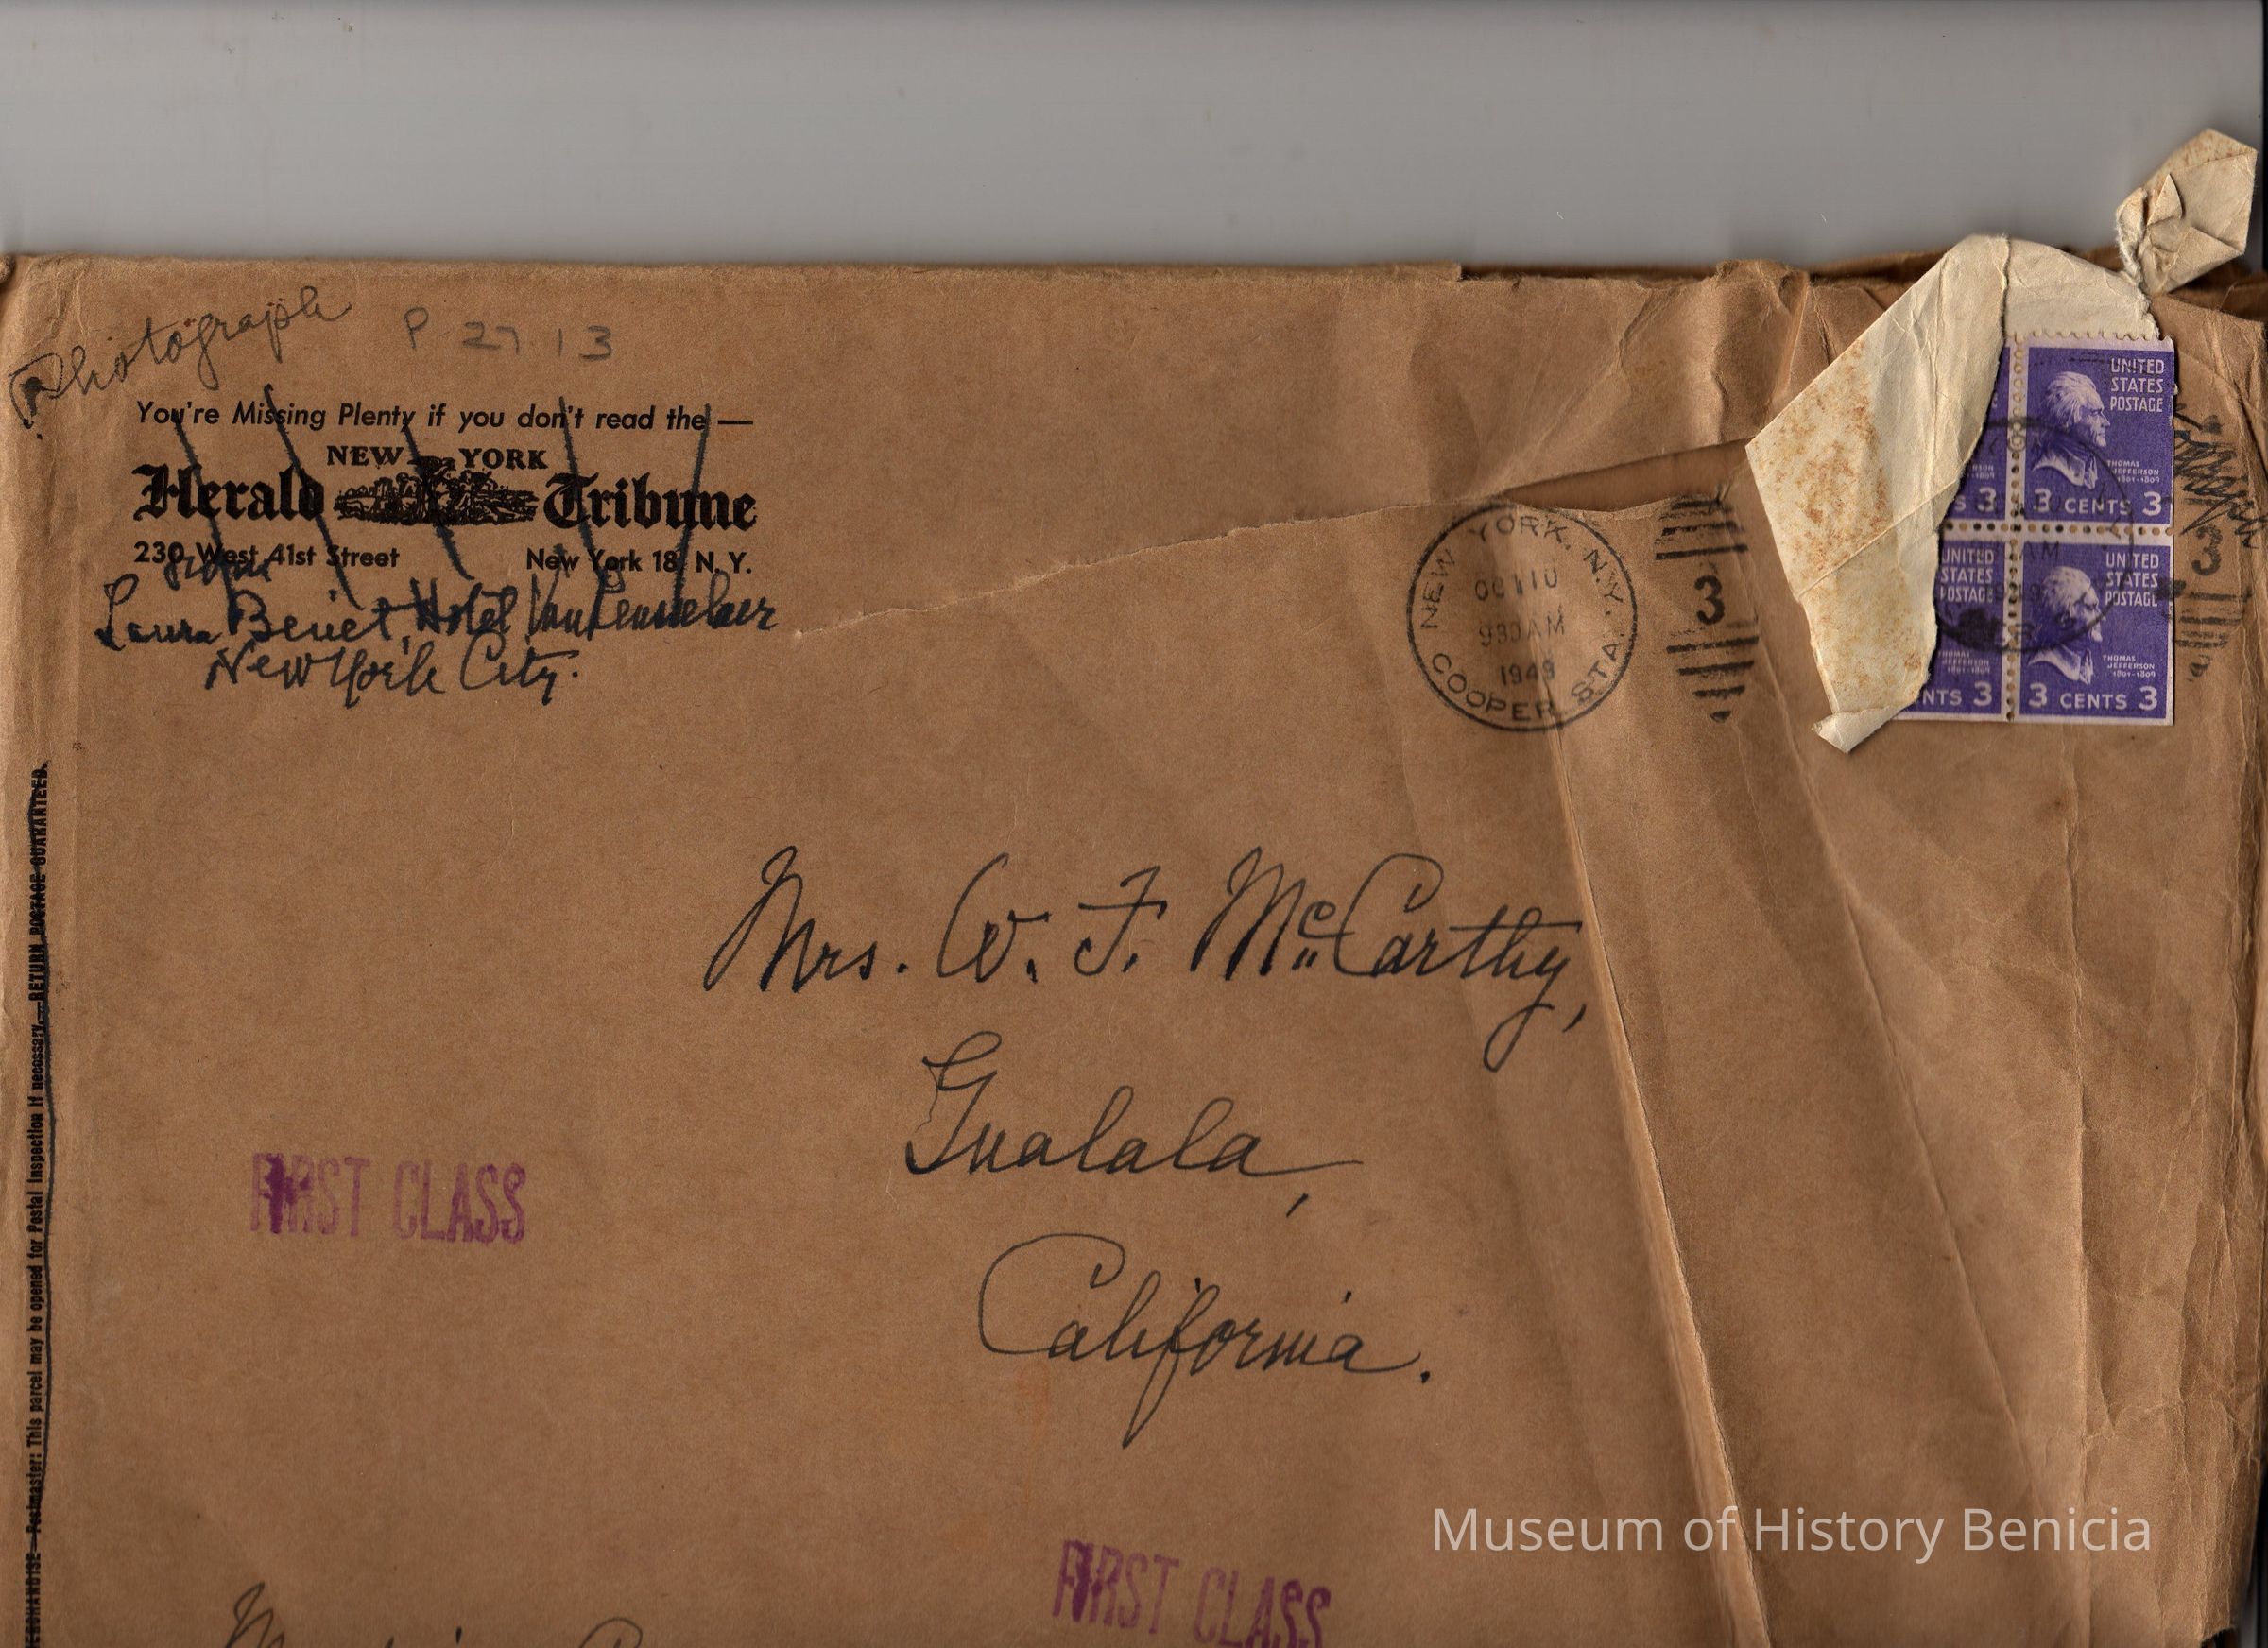 Photograph
P 27 13
You're Missing Plenty if you don't read the —
NEW YORK
Herald Tribune
230 West 41st Street New York 18, N. Y.
from
Laura Benét, Hotel Van Rensselaer
New York City.
NEW YORK, N.Y.
OCT 10
930 AM
1949
COOPER STA.
3
UNITED
STATES
POSTAGE
THOMAS
JEFFERSON
1801-1809
S 3
3 CENTS 3
AM
UNITED
STATES
POSTAGE
UNITED
STATES
POSTAGE
THOMAS
JEFFERSON
1801-1809
THOMAS
JEFFERSON
1801-1809
NTS 3
3 CENTS 3
3
Mrs. W. F. McCarthy,
Gualala,
California.
FIRST CLASS
FIRST CLASS
ERCHANDISE—Postmaster: This parcel may be opened for Postal Inspection if necessary.—RETURN POSTAGE GUARANTEED.
Museum of History Benicia